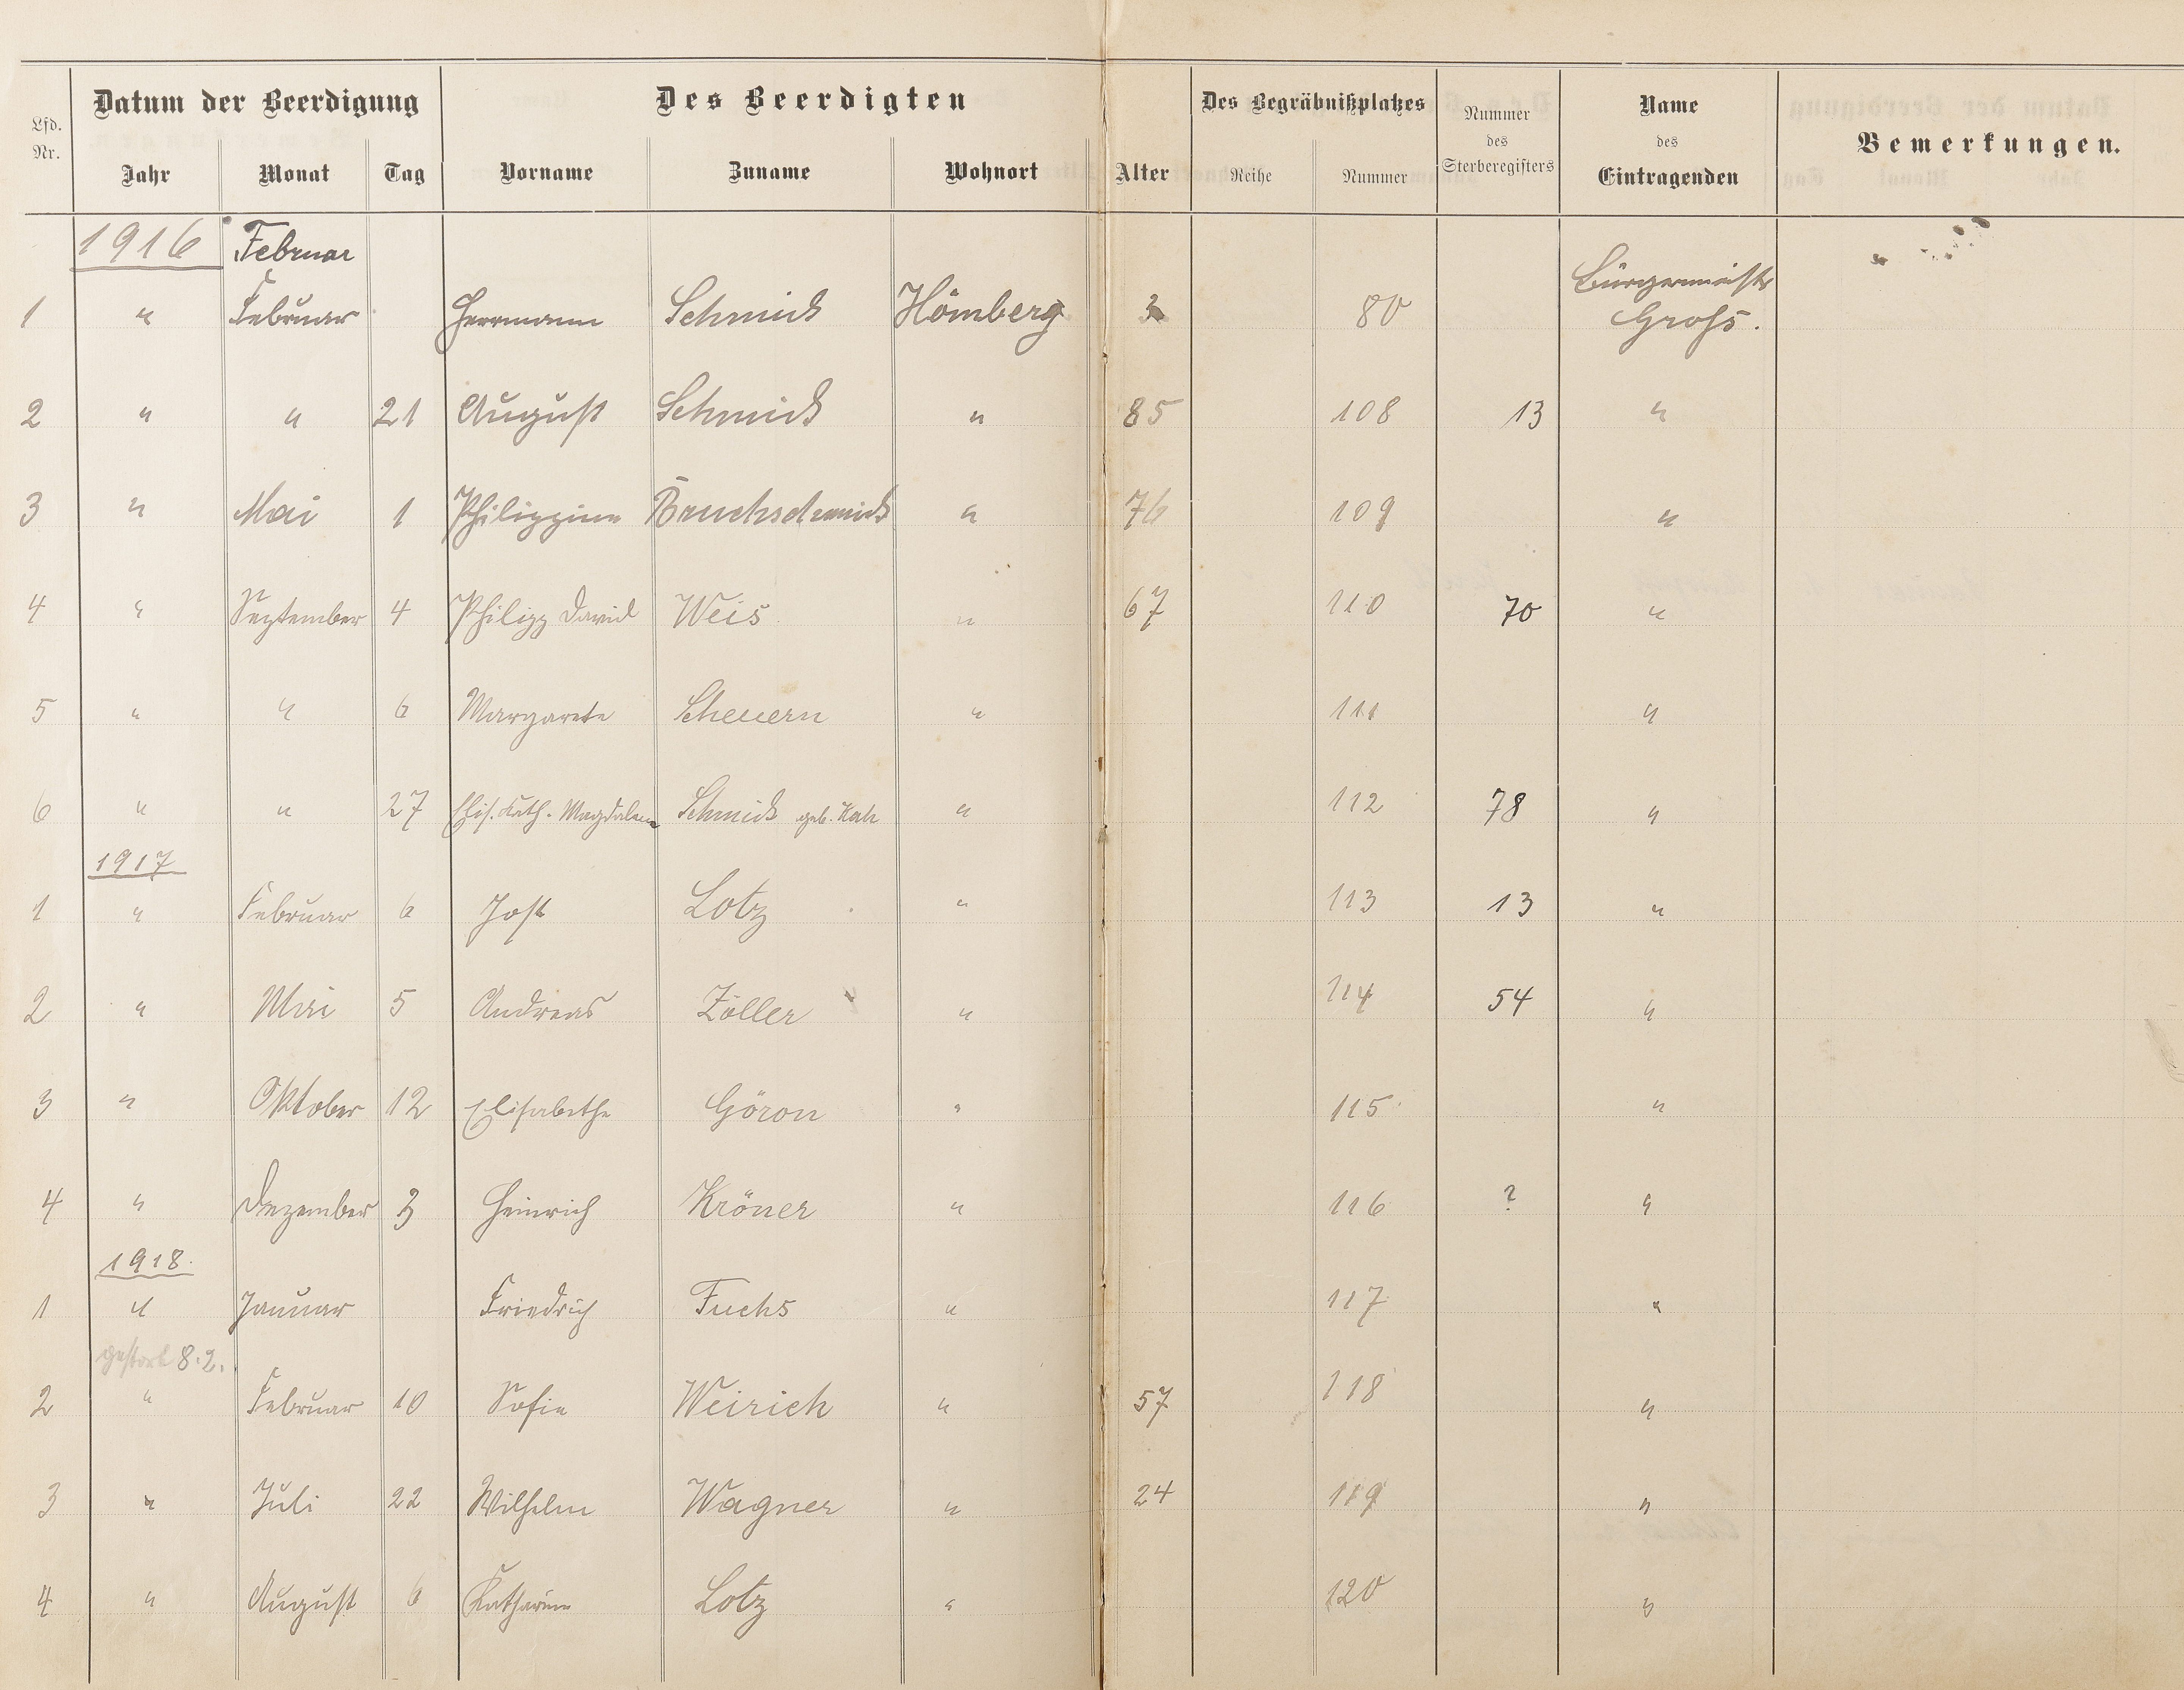 Datum der Beerdigung Des Beerdigten Des Begräbnißplatzes Nummer Name
Lfd. des des Bemerkungen.
Nr. Jahr Monat Tag Vorname Zuname Wohnort Alter Reihe Nummer Sterberegisters Eintragenden
1916 Februar
1 " Februar Herrmann Schmidt Hömberg 3 80 Bürgermeister
Groß.
2 " " 21 August Schmidt " 85 108 13 "
3 " Mai 1 Philippine Bruchschmidt " 76 109 "
4 " September 4 Philipp David Weis " 67 110 70 "
5 " " 6 Margarete Scheuern " 111 "
6 " " 27 Elis. Kath. Magdalene Schmidt geb. " 112 78 "
1917
1 " Februar 6 Jost Lotz " 113 13 "
2 " Mai 5 Andreas Zöller " 114 54 "
3 " Oktober 12 Elisabethe Göron " 115 "
4 " Dezember 3 Heinrich Kröner " 116 ? "
1918.
1 " Januar Friedrich Fuchs " 117 "
gestorb 8.2.
2 " Februar 10 Sofie Weirich " 57 118 "
3 " Juli 22 Wilhelm Wagner " 24 119 "
4 " August 6 Katharine Lotz " 120 "